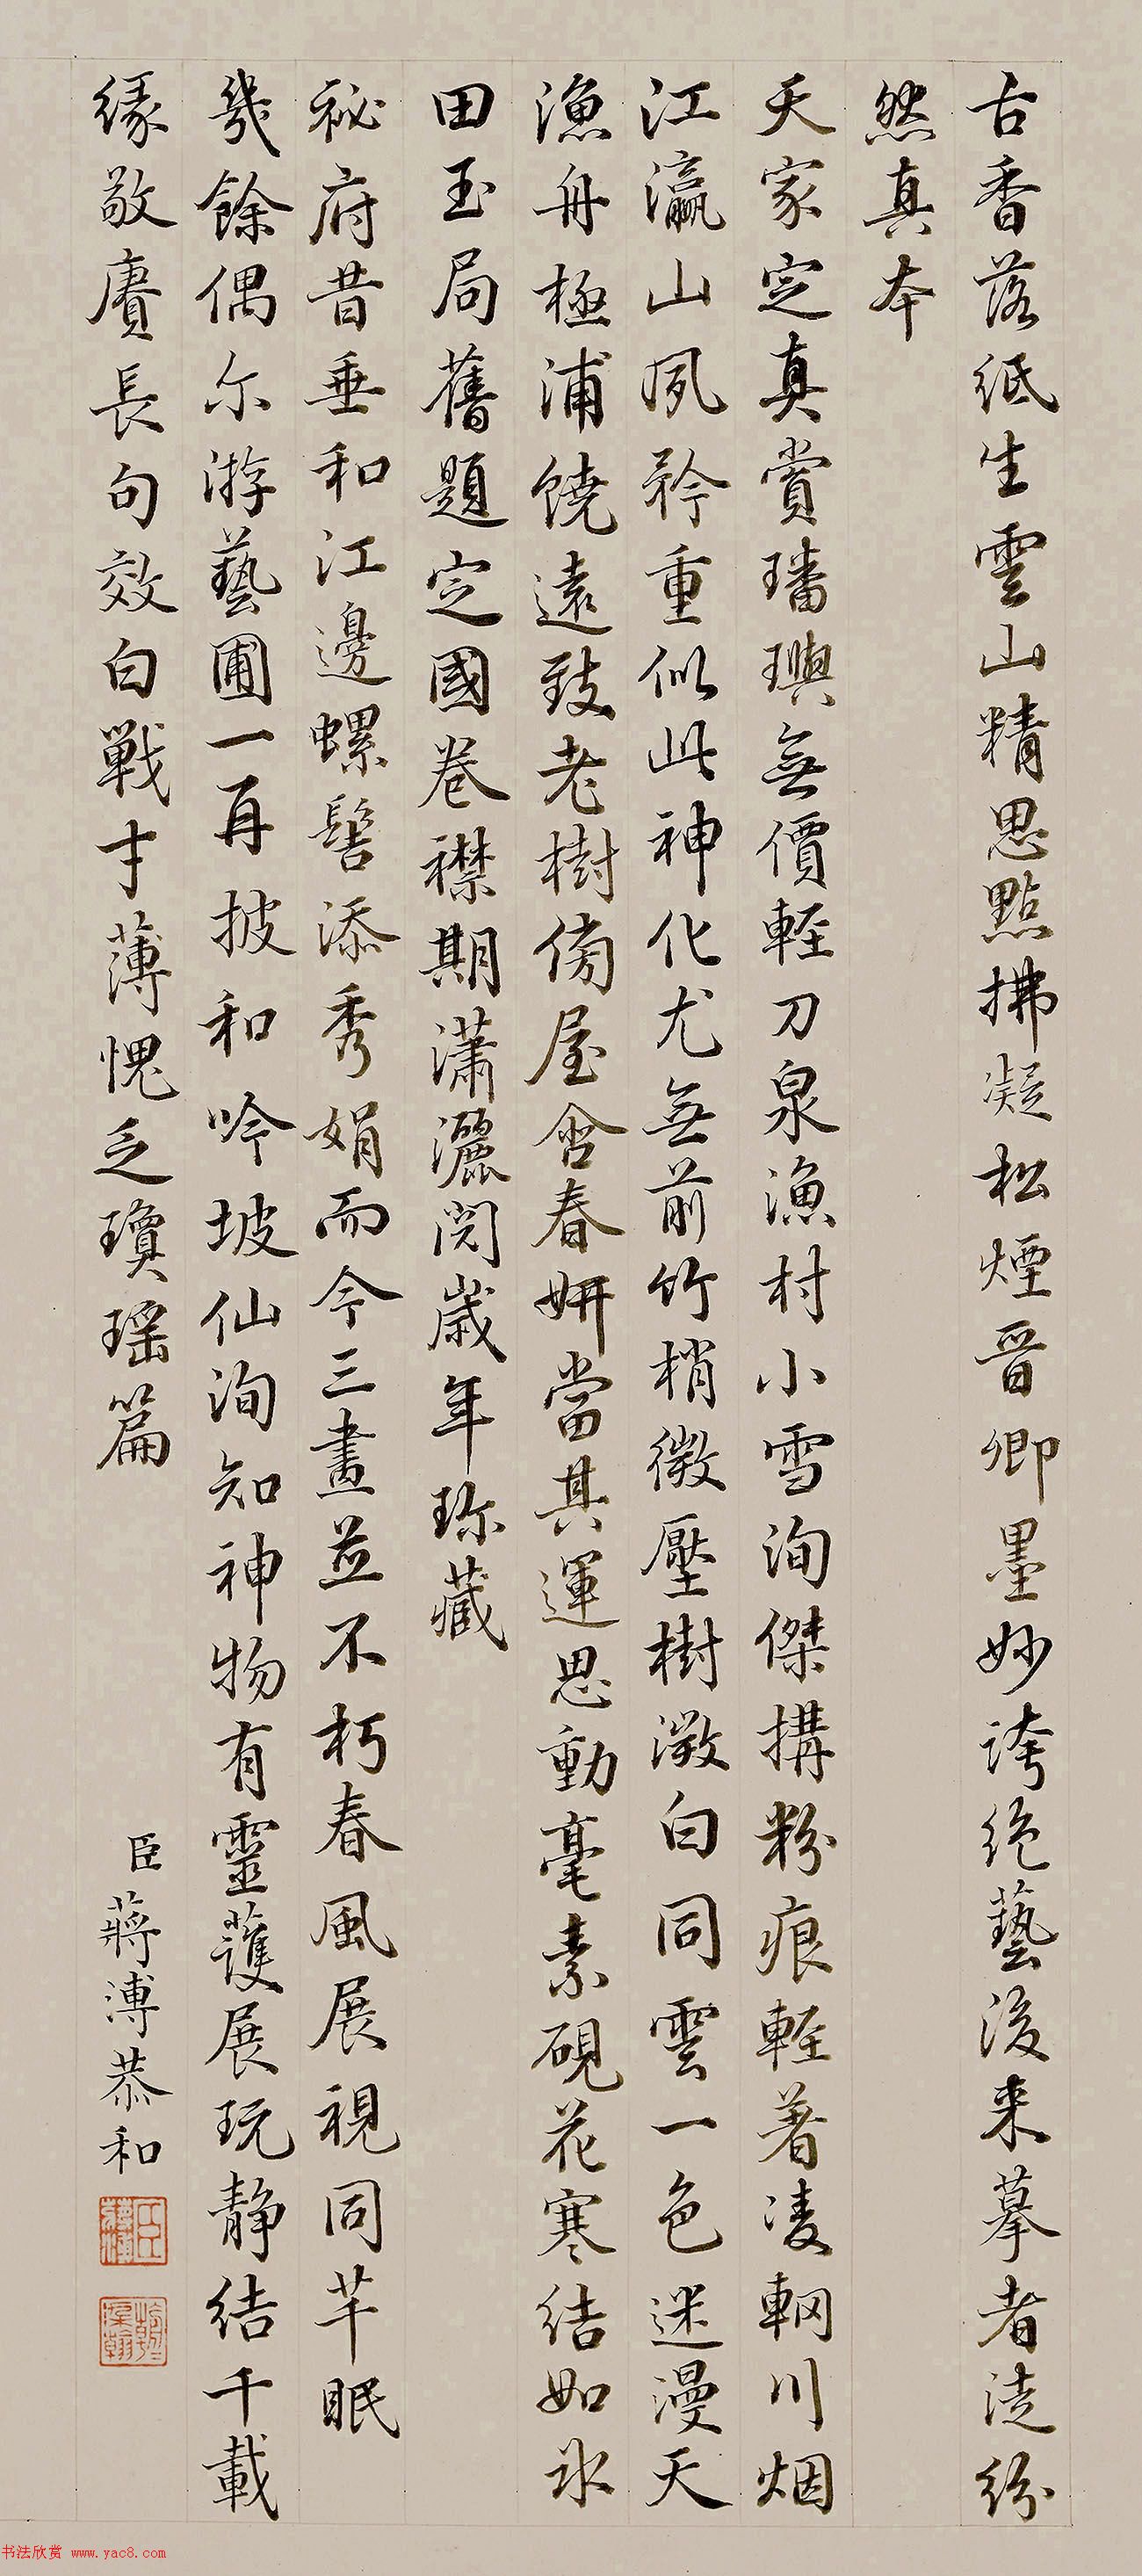 古香落紙生雲山精思點拂凝松煙晉卿墨妙誇絶藝後来摹者徒紛
然真本
天家定真賞璠璵無價輕刀泉漁村小雪洵傑搆粉痕輕著凌輞川烟
江瀛山夙矜重似此神化尤無前竹梢微壓樹瀲白同雲一色迷漫天
漁舟極浦饒遠致老樹傍屋含春妍當其運思動毫素硯花寒結如氷
田玉局舊題定國卷襟期瀟灑閱歲年珎藏
祕府昔垂和江邊螺髻添秀娟而今三畫並不朽春風展視同芊眠
幾餘偶尔游藝圃一再披和吟坡仙洵知神物有靈護展玩静結千載
緣敬賡長句效白戰才薄愧乏瓊瑶篇
臣蔣溥恭和
书法欣赏 www.yac8.com